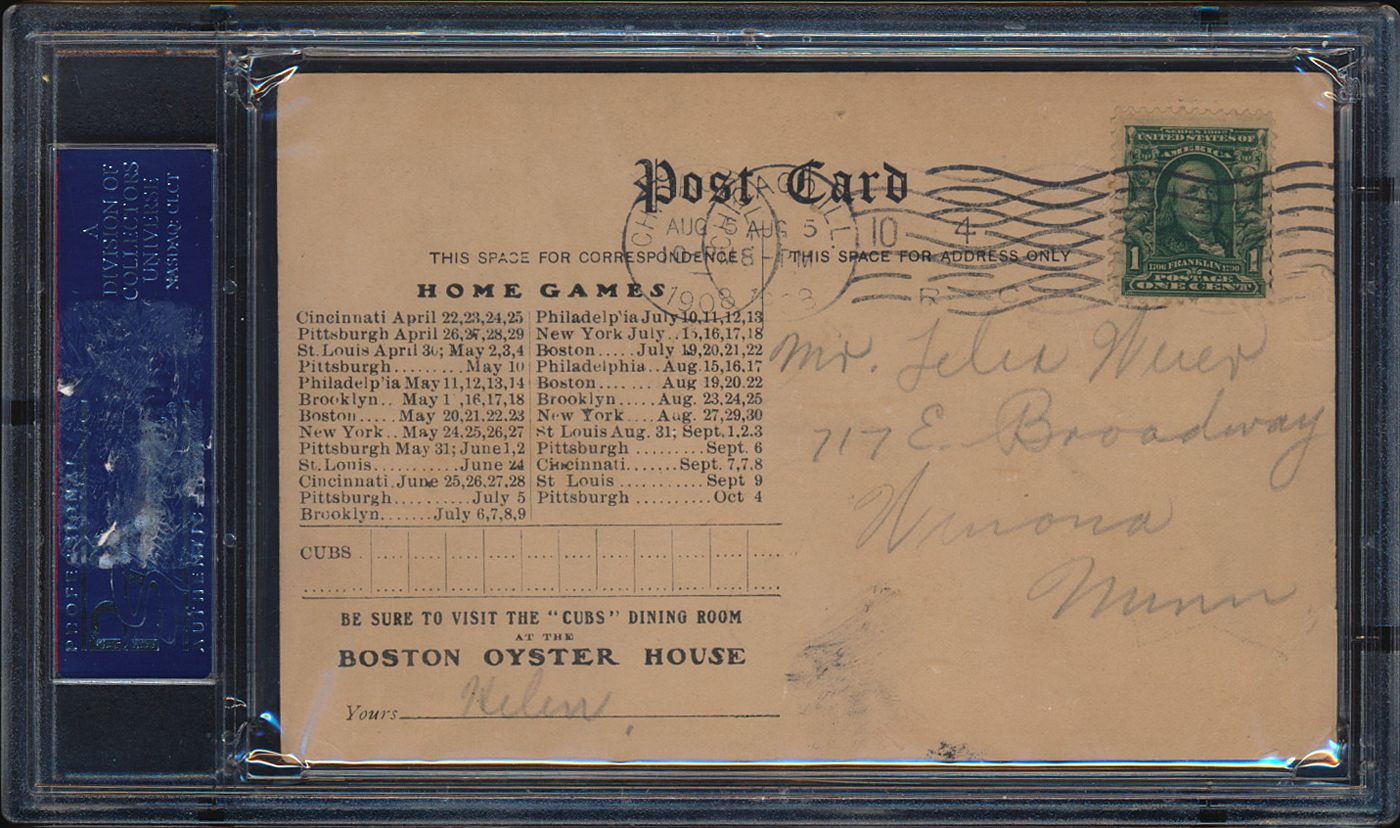 A
DIVISION OF
COLLECTORS
UNIVERSE
NASDAQ: CLCT
PROFESSIONAL
PSA
AUTHENTIC
Post Card
CHICAGO, ILL.
AUG 5
8 - PM
1908
10
4
SERIES 1902
UNITED STATES OF
AMERICA
1
1706 FRANKLIN 1790
1
POSTAGE
ONE CENT
THIS SPACE FOR CORRESPONDENCE
THIS SPACE FOR ADDRESS ONLY
HOME GAMES
Cincinnati April 22,23,24,25
Pittsburgh April 26,27,28,29
St. Louis April 30; May 2,3,4
Pittsburgh......May 10
Philadelp'ia May 11,12,13,14
Brooklyn.. May 1 ,16,17,18
Boston..... May 20,21,22,23
New York.. May 24,25,26,27
Pittsburgh May 31; June 1,2
St. Louis..........June 24
Cincinnati.June 25,26,27,28
Pittsburgh.........July 5
Brooklyn.......July 6,7,8,9
Philadelp'ia July 10,11,12,13
New York July..15,16,17,18
Boston.....July 19,20,21,22
Philadelphia..Aug.15,16,17
Boston....... Aug 19,20.22
Brooklyn..... Aug. 23,24,25
New York.... Aug. 27,29,30
St Louis Aug. 31; Sept.1,2.3
Pittsburgh ......... Sept. 6
Cincinnati.......Sept. 7,7.8
St Louis ........... Sept 9
Pittsburgh .......... Oct 4
CUBS
BE SURE TO VISIT THE "CUBS" DINING ROOM
AT THE
BOSTON OYSTER HOUSE
Yours Helen
Mr. Felix Weier
717 E. Broadway
Winona
Minn